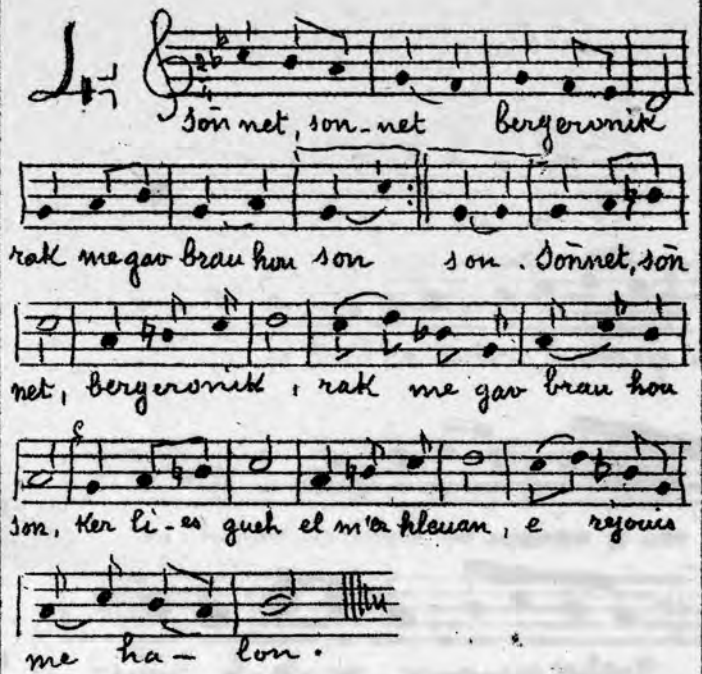 Sonnet, son-net bergeronik
rak me gav brau hou son son. Sonnet, son
net, bergeronik, rak me gav brau hou
son, Ker li-es gueh el m'er hleuan, e rejouis
me ha-lon.